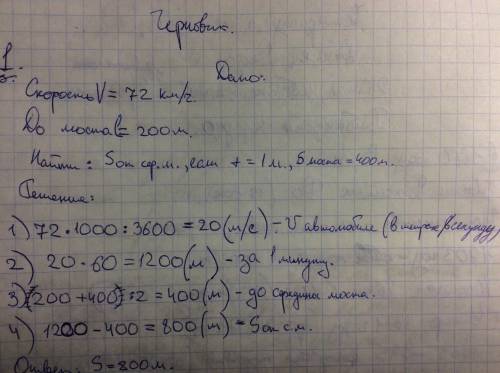 Черновик.
1
Дано:
Скорость V = 72 км/ч.
До моста l = 200 м.
Найти: S от ср.м., если t = 1 м., S моста = 400 м.
Решение:
1) 72 · 1000 : 3600 = 20 (м/с) - V автомобиле (в метрах/в секунду)
2) 20 · 60 = 1200 (м) - за 1 минуту.
3) (200 + 400) : 2 = 400 (м) - до середины моста.
4) 1200 - 400 = 800 (м) - S от с.м.
Ответ: S = 800 м.